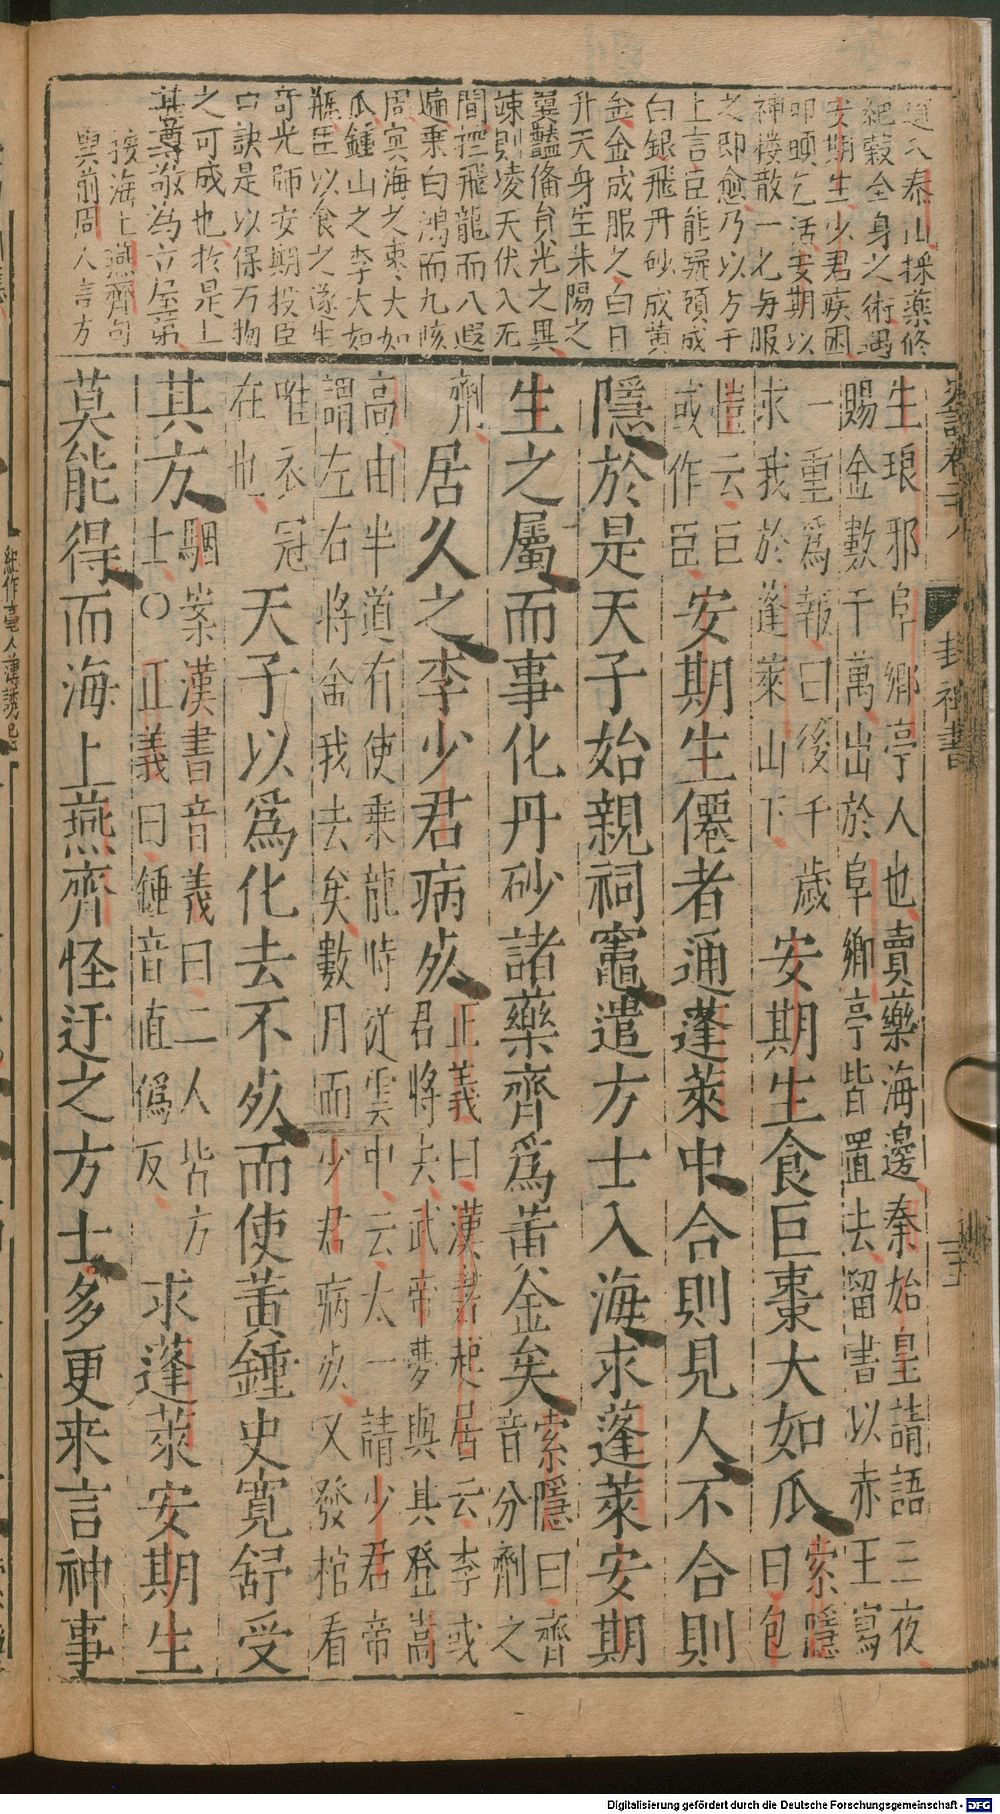 道入泰山採藥修
絕穀全身之術遇
安期生少君疾困
叩頭乞活安期以
神樓散一匕與服
之即愈乃以方干
上言臣能凝頭成
白銀飛丹砂成黃
金金成服之白日
升天身生朱陽之
翼豔備員光之異
竦則凌天伏入无
間控飛龍而八遐
遍乘白鴻而九陔
周冥海之棗大如
瓜鍾山之李大如
瓶臣以食之遂生
奇光師安期授臣
口訣是以保万物
之可成也於是上
甚尊敬為立屋第
按海上燕齊句
與前周人言方
生琅邪阜鄉亭人也賣藥海邊秦始皇請語三夜
賜金數千萬出於阜鄉亭皆置去留書以赤玉舄
一重爲報曰後千歲
求我於蓬萊山下
安期生食巨棗大如瓜
索隱
曰包
愷云巨
或作臣
安期生僊者通蓬萊中合則見人不合則
隱於是天子始親祠竈遣方士入海求蓬萊安期
生之屬而事化丹砂諸藥齊爲黃金矣
索隱曰齊
音分劑之
劑
居久之李少君病死
正義曰漢書起居云李或
君將去武帝夢與其登嵩
高由半道有使乘龍時從雲中云太一請少君帝
謂左右將舍我去矣數月而少君病死又發棺看
唯衣冠
在也
天子以爲化去不死而使黃鍾史寬舒受
其方
駰案漢書音義曰二人皆方
士○正義曰鍾音直僞反
求蓬萊安期生
莫能得而海上燕齊怪迂之方士多更来言神事
封禪書
Digitalisierung gefördert durch die Deutsche Forschungsgemeinschaft - DFG